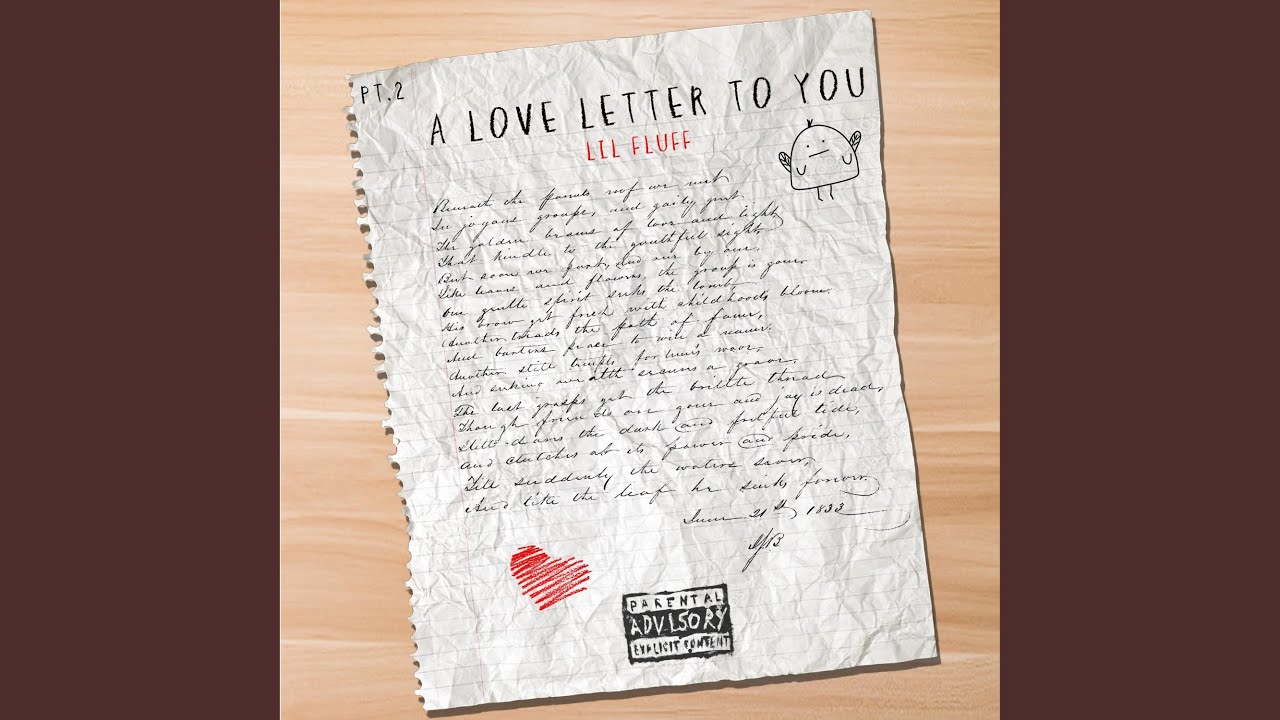 PT.2
A LOVE LETTER TO YOU
LIL FLUFF
Beneath the parents roof we met
In joyous groups, and gaily
The golden beams of love and light
That kindle to the youthful sight,
But soon we part, and one by one,
Like leaves and flowers, the group is gone.
One gentle spirit seeks the tomb
His brow yet fresh with childhood's bloom.
Another treads the path of fame,
And barters peace to win a name.
Another still tempts fortune's wave,
And seeking wealth secures a grave.
The last grasps yet the brittle thread
Though friends are gone and joy is dead,
Still dares the dark and fretful tide,
And clutches at its power and pride,
Till suddenly the waters sever,
And like the leaf he sinks forever.
June 21st 1833
PARENTAL
ADVISORY
EXPLICIT CONTENT